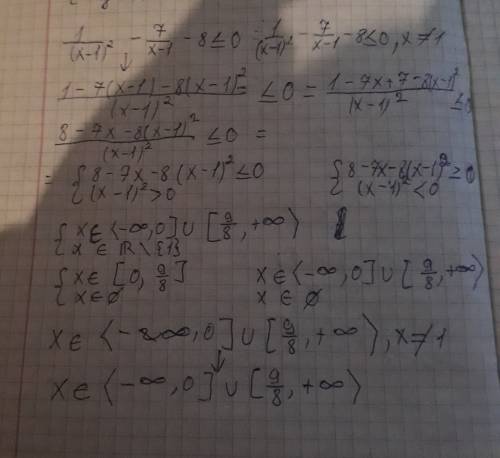 1/(x-1)² - 7/(x-1) - 8 ≤ 0 = 1/(x-1)² - 7/(x-1) - 8 ≤ 0, x ≠ 1
↓
(1 - 7(x-1) - 8(x-1)²)/(x-1)² = ≤ 0 = (1 - 7x + 7 - 8(x-1)²)/(x-1)² ≤ 0
(8 - 7x - 8(x-1)²)/(x-1)² ≤ 0 =
= { 8 - 7x - 8(x-1)² ≤ 0 { 8 - 7x - 8(x-1)² ≥ 0
(x-1)² > 0 (x-1)² < 0
{ x ∈ ⟨-∞, 0] ∪ [9/8, +∞⟩
x ∈ ℝ \ {1}
{ x ∈ [0, 9/8] x ∈ ⟨-∞, 0] ∪ [9/8, +∞⟩
x ∈ ∅ x ∈ ∅
x ∈ ⟨-∞, 0] ∪ [9/8, +∞⟩, x ≠ 1
↓
x ∈ ⟨-∞, 0] ∪ [9/8, +∞⟩